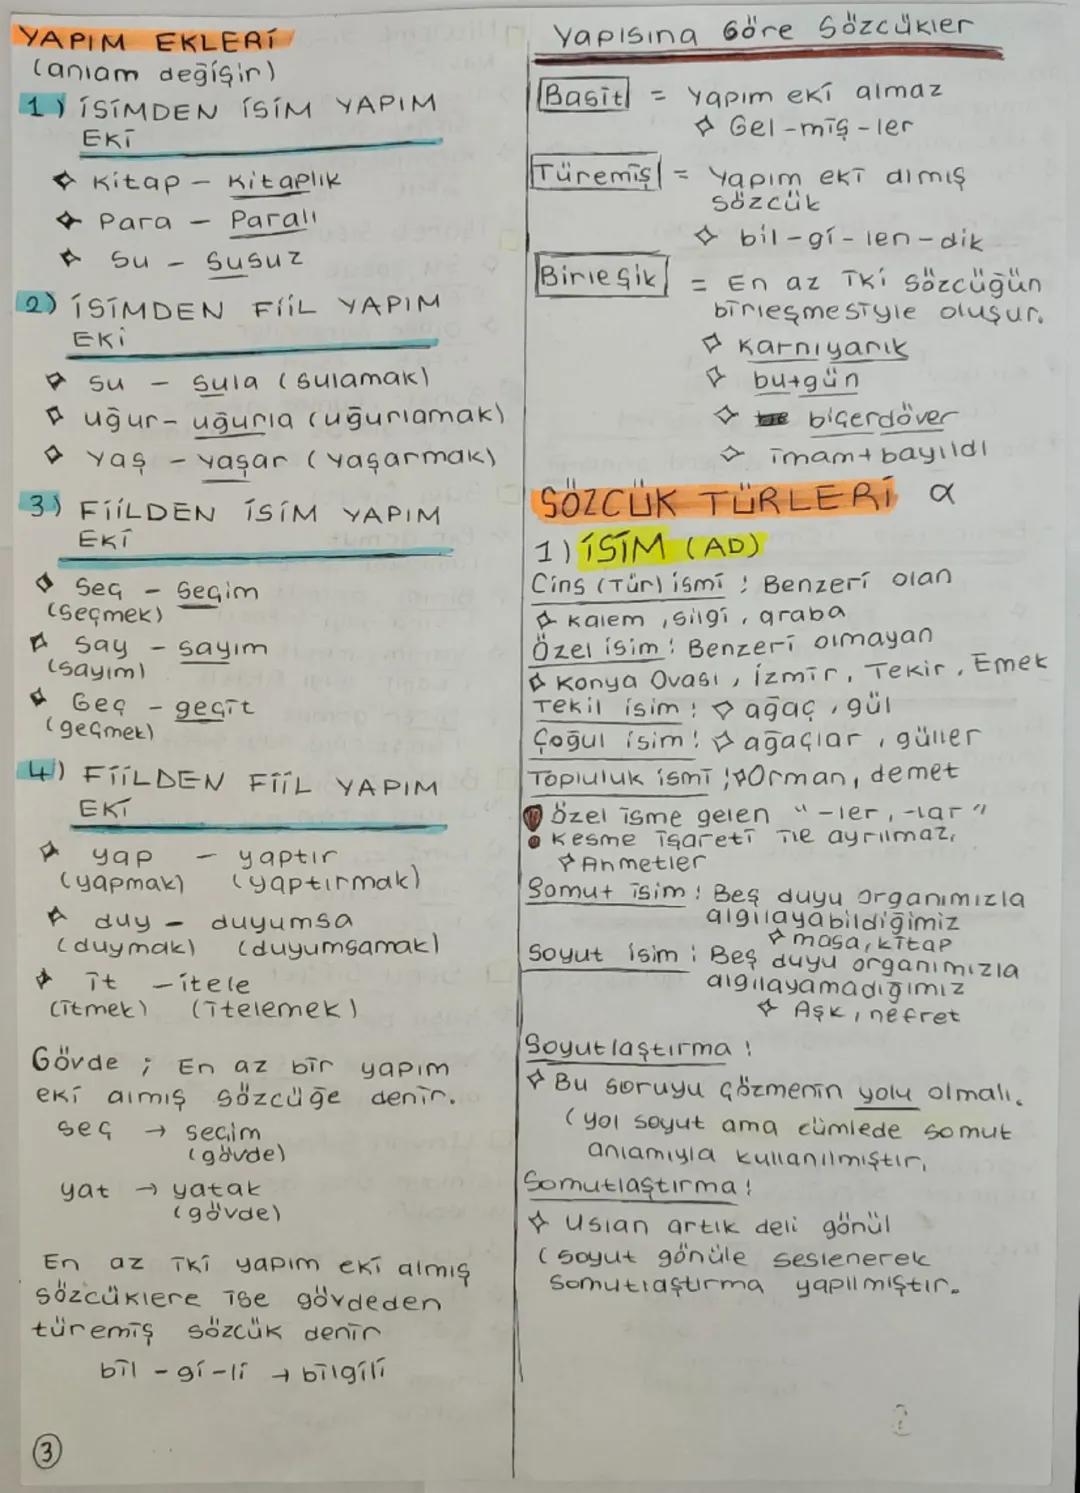 YAPIM EKLERİ
(anlam değişir)
1) İSİMDEN İSİM YAPIM
EKİ
Kitap - Kitaplık
Para - Paralı
Su - Susuz
2) İSİMDEN FİİL YAPIM
EKİ
su - sula (sulamak)
uğur - uğurla (uğurlamak)
yaş - yaşar (yaşarmak)
3) FİİLDEN İSİM YAPIM
EKİ
Seç - Seçim
(Seçmek)
Say - sayım
(sayım)
Geç - geçit
(geçmek)
4) FİİLDEN FİİL YAPIM
EKİ
yap - yaptır
(yapmak) (yaptırmak)
duy - duyumsa
(duymak) (duyumsamak)
it - itele
(itmek) (itelemek)
Gövde ; En az bir yapım
eki almış sözcüğe denir.
seç → seçim
(gövde)
yat → yatak
(gövde)
En az iki yapım eki almış
sözcüklere ise gövdeden
türemiş sözcük denir
bil - gi - li → bilgili
3
Yapısına Göre Sözcükler
Basit = Yapım eki almaz
Gel - miş - ler
Türemiş = Yapım eki almış
sözcük
bil - gi - len - dik
Birleşik = En az iki sözcüğün
birleşmesiyle oluşur.
Karnıyarık
bu+gün
biçerdöver
imam+bayıldı
SÖZCÜK TÜRLERİ α
1) İSİM (AD)
Cins (Tür) ismi : Benzeri olan
Kalem, silgi, araba
Özel isim : Benzeri olmayan
Konya Ovası, İzmir, Tekir, Emek
Tekil isim : ağaç, gül
Çoğul isim : ağaçlar, güller
Topluluk ismi : Orman, demet
Özel isme gelen "-ler, -lar"
Kesme işareti ile ayrılmaz.
Ahmetler
Somut isim : Beş duyu organımızla
algılayabildiğimiz
masa, kitap
Soyut isim : Beş duyu organımızla
algılayamadığımız
Aşk, nefret
Soyutlaştırma :
Bu soruyu çözmenin yolu olmalı.
(yol soyut ama cümlede somut
anlamıyla kullanılmıştır.
Somutlaştırma :
Uslan artık deli gönül
(soyut gönüle seslenerek
somutlaştırma yapılmıştır.